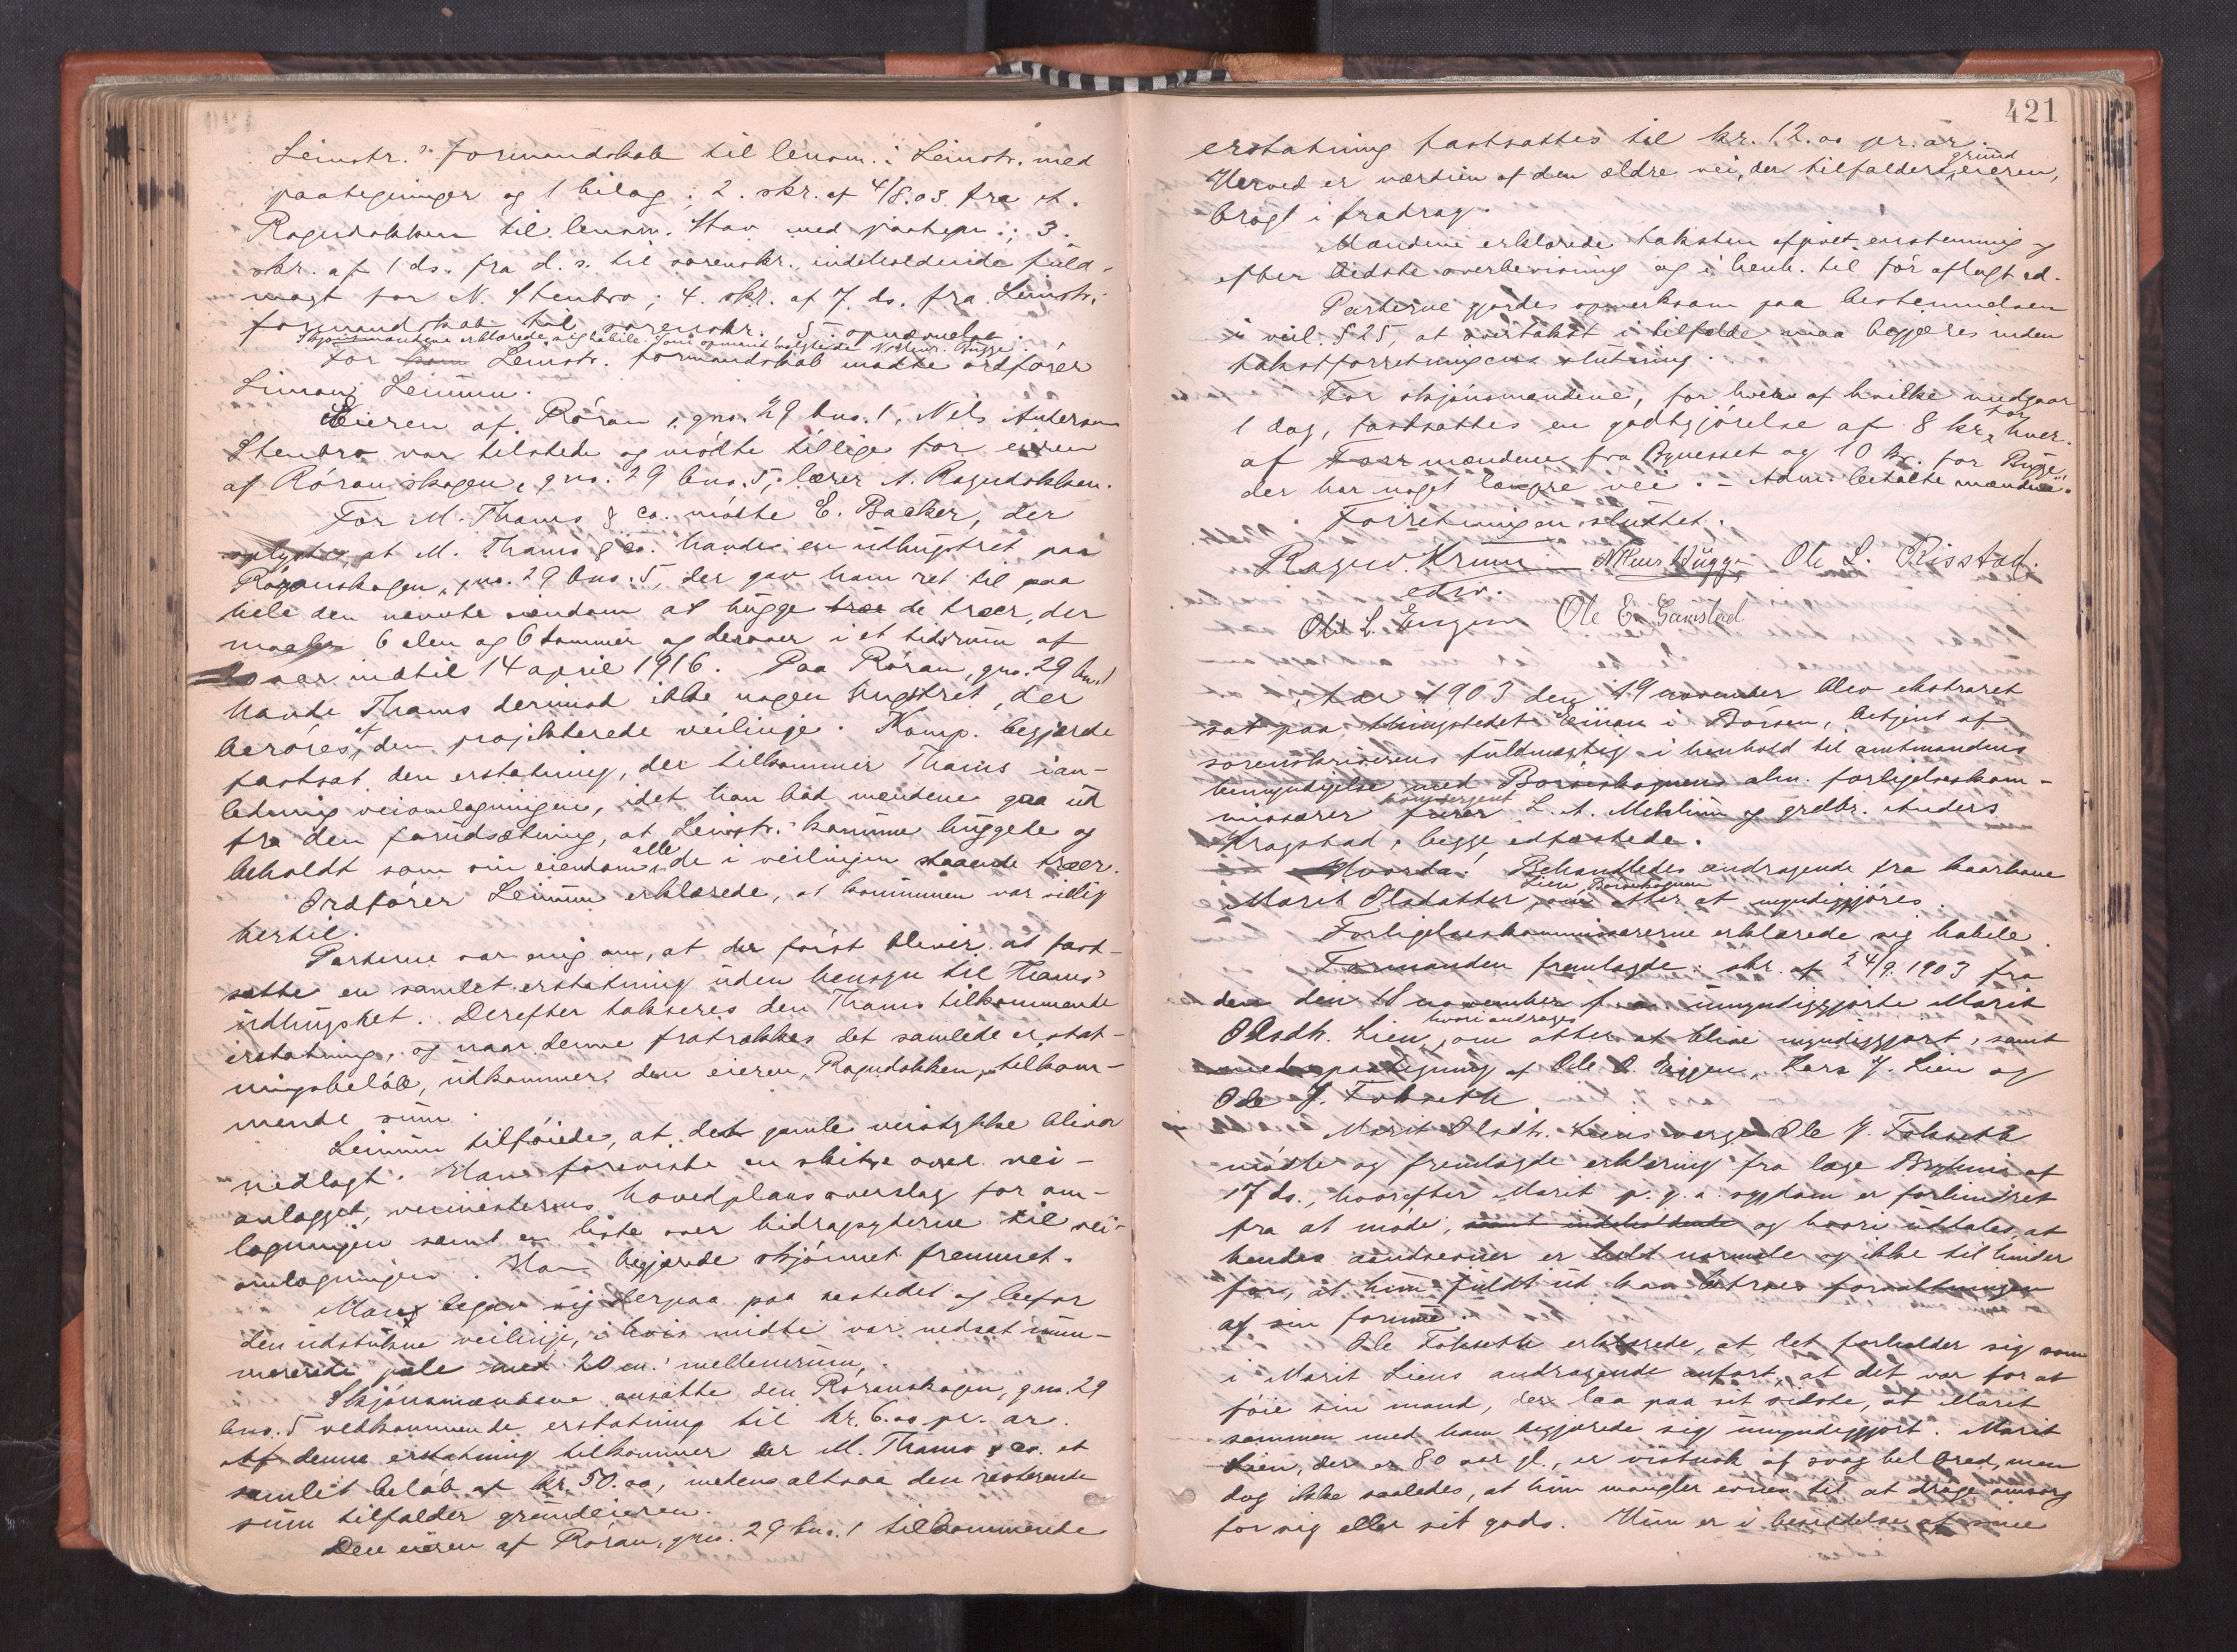 Leinstr.s formandskab til lensm. i Leinstr. med
paategninger og 1 bilag; 2. skr. af 4/8.03. fra A.
Ragndokken til lensm. Hov med paategn.; 3.
skr. af 1 ds. fra d. s. til sorenskr. indeholdende fuld-
magt for N. Stenbro; 4. skr. af 7. ds. fra Leinstr.
formandskab til sorenskr. 5 opnævnelse.
Skjønsmændene erklærede sig habile. Som opmand valgtes Bügge.
For Leinstr. formandskab mødte ordfører
Simon Leinum.
Eieren af Røran, gno. 29 bno. 1, Nils Andersen
Stenbro var tilstede og mødte tillige for eieren
af Røranskogen, gno. 29 bno. 5, lærer A. Ragndokken.
For M. Thams & co. mødte E. Backer, der
oplyste, at M. Thams & co. havde en udhugstret paa
Røranskogen, gno. 29 bno. 5, der gav ham ret til paa
hele den nævnte eiendom at hugge træ de træer, der
maaler 6 alen og 6 tommer og derover i et tidsrum af
aar indtil 14 april 1916. Paa Røran, gno. 29 bn. 1
havde Thams derimod ikke nogen hugstret, der
berøres af den projekterede veilinje. Komp. begjærede
fastsat den erstatning, der tilkommer Thams i an-
ledning veiomlægningen, idet han bad mændene gaa ud
fra den forudsætning, at Leinstr. kommune huggede og
beholdt som sin eiendom alle de i veilinjen staaende træer.
Ordfører Leinum erklærede, at kommunen var villig
hertil.
Parterne var enig om, at der først bliver at fast-
sætte en samlet erstatning uden hensyn til Thams'
udhugstret. Derefter takseres den Thams tilkommende
erstatning, og naar denne fratrækkes det samlede erstat-
ningsbeløb, udkommer den eieren, Ragndokken, tilkom-
mende sum.
Leinum tilføiede, at det gamle veistykke bliver
nedlagt. Han foreviste en skitse over vei-
anlægget, veimesterens hovedplansoverslag for om-
lægningen samt en liste over bidragsyderne til vei-
omlægningen. Han begjærede skjønnet fremmet.
Man begav sig derpaa paa aastedet og befor
den udstukne veilinje, i hvis midte var nedsat num-
mererte pæle med 20 m. mellemrum.
Skjønsmændene ansatte den Røranskogen, gno. 29
bno. 5 vedkommende erstatning til kr. 6.00 pr. ar.
Af denne erstatning tilkommer der M. Thams & co. et
samlet beløb af kr. 50.00, medens altsaa den resterende
sum tilfalder grundeieren.
Den eieren af Røran, gno. 29 bno. 1 tilkommende
421
erstatning fastsattes til kr. 12.00 pr. ar.
Herved er værdien af den ældre vei, der tilfalder grundeieren,
bragt i fradrag.
Mændene erklærede taksten afgivet enstemmig og
efter bedste overbevisning og i henh. til før aflagt ed.
Parterne gjordes opmerksom paa bestemmelsen
i veil. § 25, at overtakst i tilfælde maa begjæres inden
takstforretningens slutning.
For skjønsmændene, for hver af hvilke medgaar
1 dag, fastsattes en godtgjørelse af 8 kr. for hver
af mændene fra Bynesset og 10 kr. for Bügge,
der har noget længre vei. – Adm. betalte mændene.
Forretningen sluttet.
Ragnv. Krum Bügge Ole L. Risstad.
edsv.
Ole L. Engen Ole E. Gaustad
Aar 1903 den 19 november blev ekstraret
sat paa thingstedet Eiinan i Børsen, betjent af
sorenskriverens fuldmægtig i henhold til amtmandens
bemyndigelse med Børseskognens alm. forligelseskom-
missærer L. A. Mehlum og grdbr. Anders
Krogstad, begge edfæstede.
Hvorda: Behandledes andragende fra kaarkone
Marit Olsdatter Lien, Børseskognen om atter at myndiggjøres.
Forligelseskommissærerne erklærede sig habile.
Formanden fremlagde: skr. af 24/9. 1903 fra
den den 18 november f. a. umyndiggjorte Marit
Olsdtr. Lien, hvori andrages om atter at blive myndiggjort, samt
med paategning af Ole O. Eggen, Lars J. Lien og
Ole J. Fokseth
Marit Olsdtr. Liens verge Ole J. Fokseth
mødte og fremlagde erklæring fra læge af
17 ds., hvorefter Marit p. g. a. sygdom er forhindret
fra at møde, samt indeholdende og hvori udtales, at
hendes aandsevner er helt normale og ikke til hinder
for, at hun fuldt ud kan betroes forvaltningen
af sin formue.
Ole Fokseth erklærede, at det forholder sig som
i Marit Liens andragende anført, at det var for at
føie sin mand, der laa paa sit sidste, at Marit
sammen med ham begjærede sig umyndiggjort. Marit
Lien, der er 80 aar gl., er vistnok af svag helbred, men
dog ikke saaledes, at hun mangler evnen til at drage omsorg
for sig eller sit gods. Hun er i besiddelse af sine